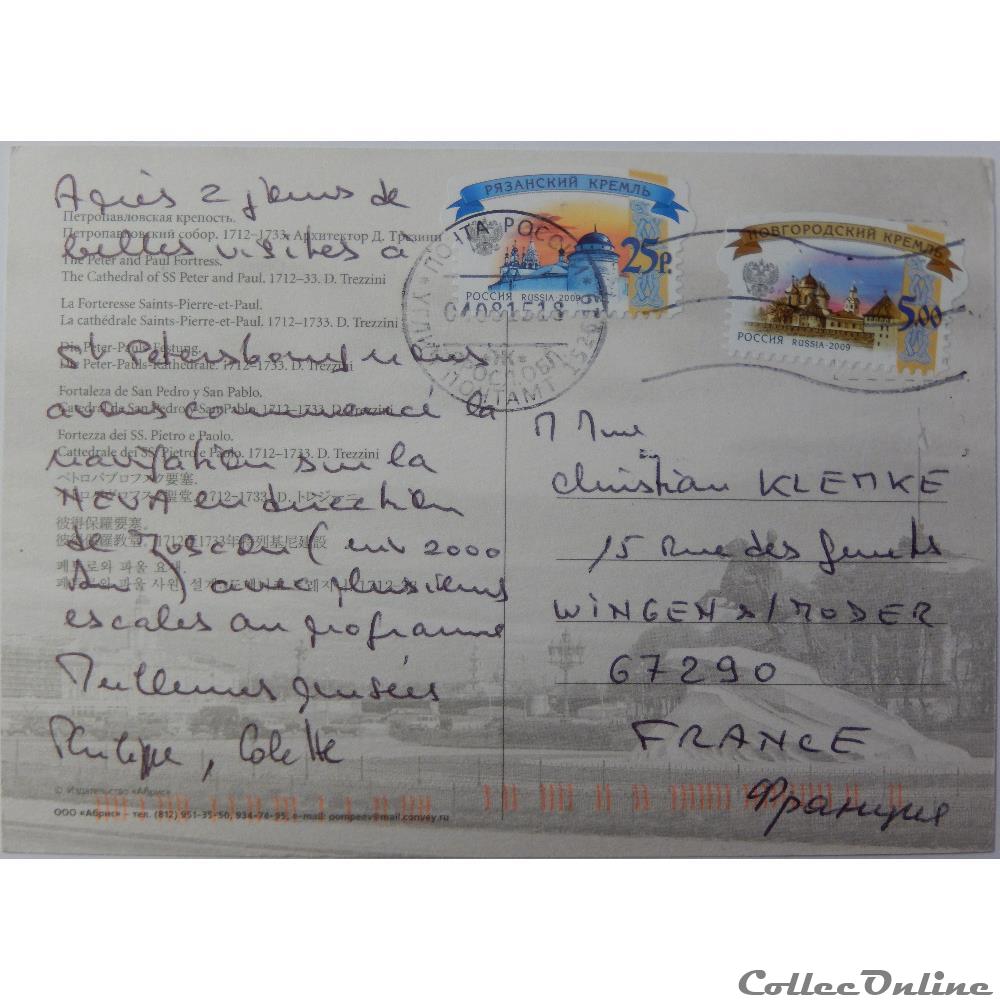 Après 2 jours de
belles visites à
St Petersbourg nous
avons commencé la
navigation sur la
NEVA en direction
de Moscou ( env 2000
km ) avec plusieurs
escales au programme
Meilleures pensées
Philippe, Colette
Петропавловская крепость.
Петропавловский собор. 1712–1733. Архитектор Д. Трезини
The Peter and Paul Fortress.
The Cathedral of SS Peter and Paul. 1712–33. D. Trezzini
La Forteresse Saints-Pierre-et-Paul.
La cathédrale Saints-Pierre-et-Paul. 1712–1733. D. Trezzini
Die Peter-Pauls-Festung.
Die Peter-Pauls-Kathedrale. 1712–1733. D. Trezzini
Fortaleza de San Pedro y San Pablo.
Catedral de San Pedro y San Pablo. 1712–1733. D. Trezzini
Fortezza dei SS. Pietro e Paolo.
Cattedrale dei SS. Pietro e Paolo. 1712–1733. D. Trezzini
ペトロパブロフスク要塞.
ペトロパブロフスク聖堂. 1712–1733. D. トレジーニ
彼得保羅要塞.
彼得保羅教堂. 1712–1733年特列基尼建設
페트로와 파울 요새.
페트로와 파울 사원. 1712–33
© Издательство «Абрис»
ООО «Абрис» тел. (812) 951-35-50, 934-76-95, e-mail: pompeev@mail.convey.ru
РЯЗАНСКИЙ КРЕМЛЬ
25р.
РОССИЯ RUSSIA·2009
НОВГОРОДСКИЙ КРЕМЛЬ
5.00
РОССИЯ RUSSIA·2009
ПОЧТА РОССИИ
0408151518
УГЛИЧ ПОЧТАМТ
M Mme
Christian KLEMKE
15 Rue des Genets
WINGEN s/ MODER
67290
FRANCE
Франция
CollecOnline